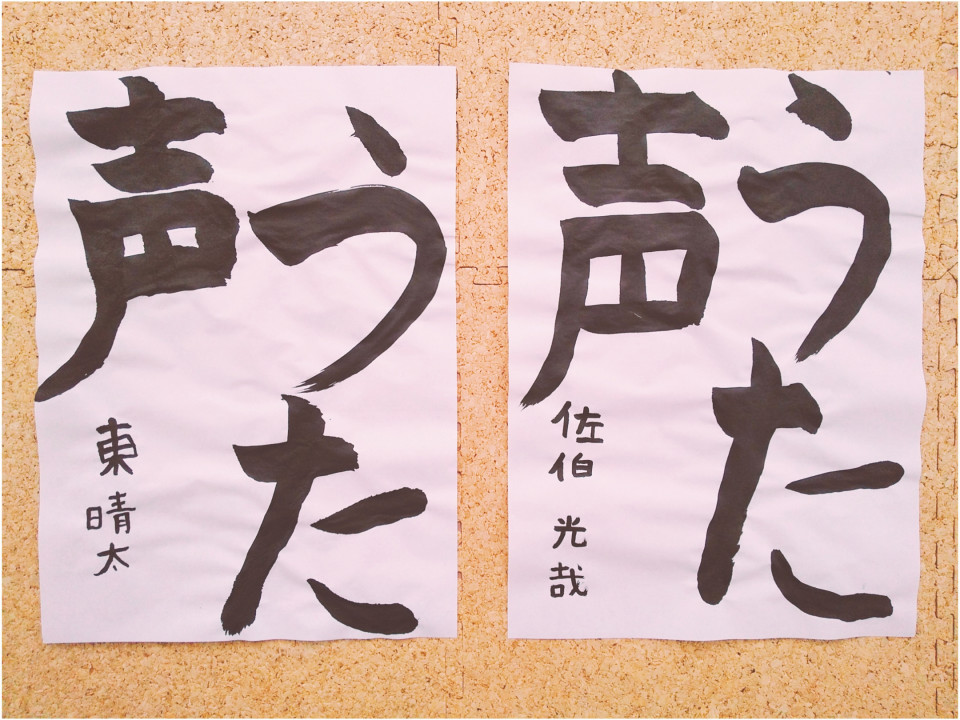 うた
声
東 晴太
うた
声
佐伯 光哉